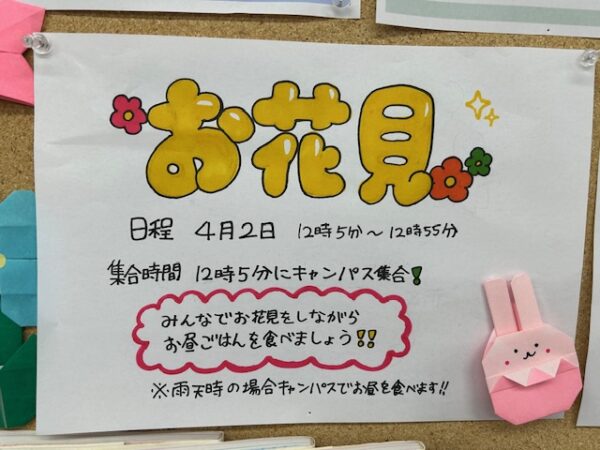 お花見
日程 4月2日 12時5分～12時55分
集合時間 12時5分にキャンパス集合!
みんなでお花見をしながら
お昼ごはんを食べましょう!!
※雨天時の場合キャンパスでお昼を食べます!!